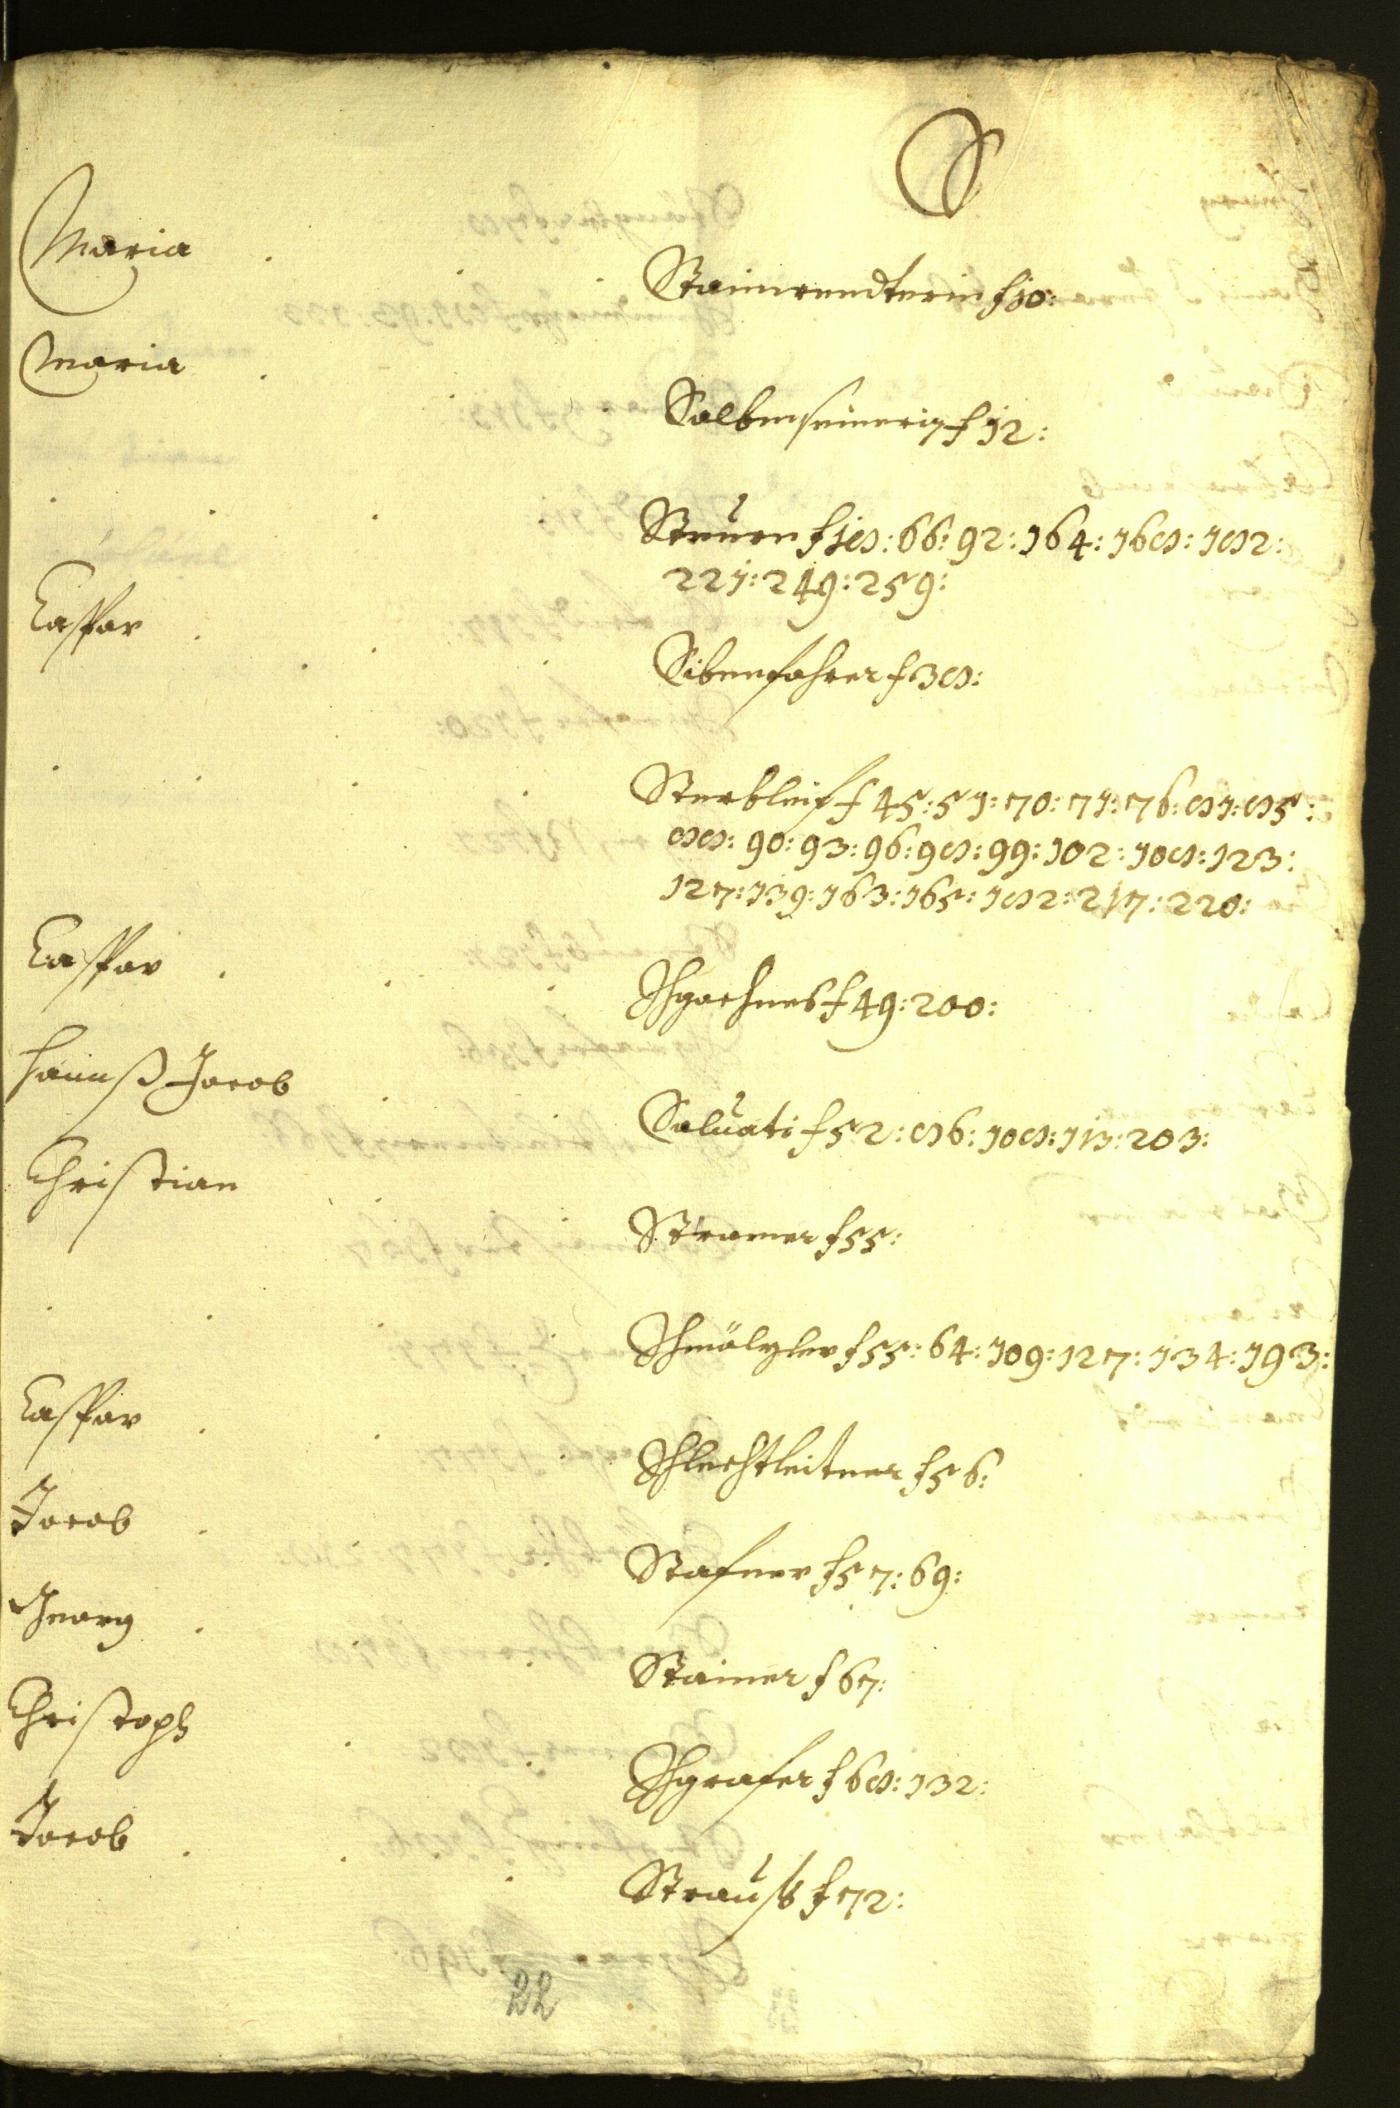 S
Maria Stainwendterin f 10:
Maria Salbmseinerin f 12:
Steurn f 18: 66: 92: 164: 168: 182:
221: 249: 259:
Caspar Sibenfahrer f 38:
Sterbleif f 45: 51: 70: 71: 76: 81: 85:
88: 90: 93: 96: 98: 99: 102: 108: 123:
127: 139: 163: 165: 182: 217: 220:
Caspar Schgachnes f 49: 200:
Hannß Jacob Saluati f 52: 86: 108: 113: 203:
Christian Stramer f 55:
Schmälzler f 55: 64: 109: 127: 134: 193:
Caspar Schlechtleitner f 56:
Jacob Stafner f 57: 69:
Georg Stainer f 67:
Christoph Schgrafer f 68: 132:
Jacob Strauß f 72:
22